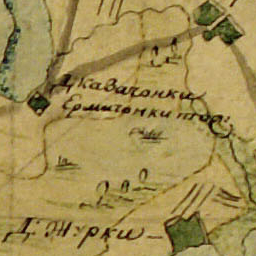 Д: Кавачонки
Ермачонки тоо:
Д: Журки